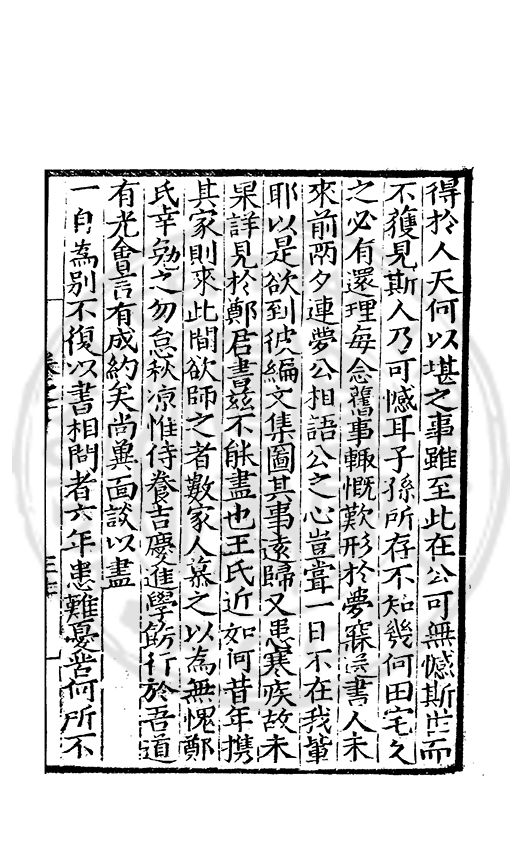 得於人天何以堪之事雖至此在公可無憾斯世而
不獲見斯人乃可憾耳子孫所存不知幾何田宅久
之必有還理每念舊事輒慨歎形於夢寐送書人未
來前兩夕連夢公相語公之心豈嘗一日不在我輩
耶以是欲到彼編文集圖其事遠歸又患寒疾故未
果詳見於鄭君書玆不能盡也王氏近如何昔年携
其家則來此間欲師之者數家人慕之以為無愧鄭
氏幸勉之勿怠秋凉惟侍養吉慶進學飭行於吾道
有光會言有成約矣尚冀面談以盡
一自為別不復以書相問者六年患難憂苦何所不